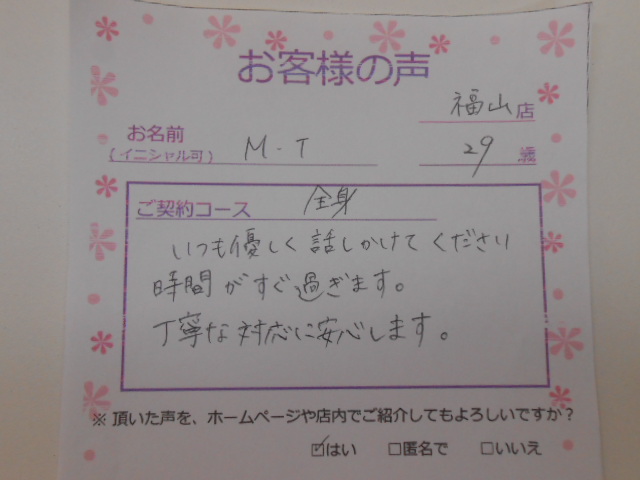 お客様の声
福山店
お名前
(イニシャル可) M・T 29歳
ご契約コース 全身
いつも優しく話しかけてくださり
時間がすぐ過ぎます。
丁寧な対応に安心します。
※頂いた声を、ホームページや店内でご紹介してもよろしいですか？
☑はい □匿名で □いいえ